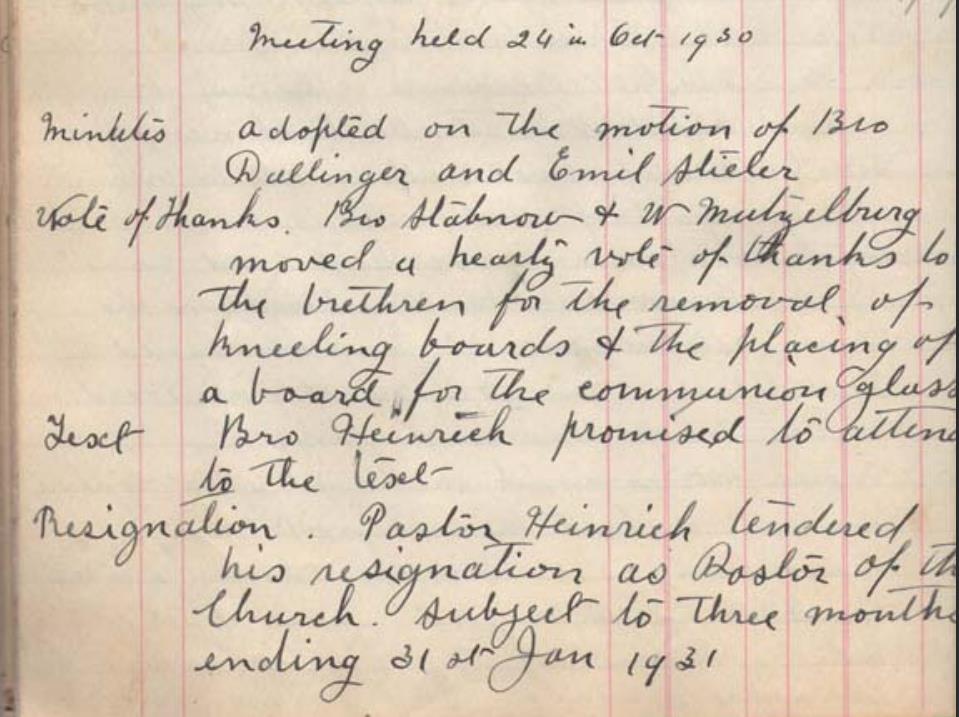 Meeting held 24 in Oct 1930
Minutes adopted on the motion of Bro
Dallinger and Emil Stieler
Vote of Thanks. Bro Stabnow & W Mutzelburg
moved a hearty vote of thanks to
the brethren for the removal of
kneeling boards & the placing of
a board for the communion glass
Text Bro Heinrich promised to atten
to the text
Resignation. Pastor Heinrich tendered
his resignation as Pastor of th
Church. subject to three months
ending 31st Jan 1931